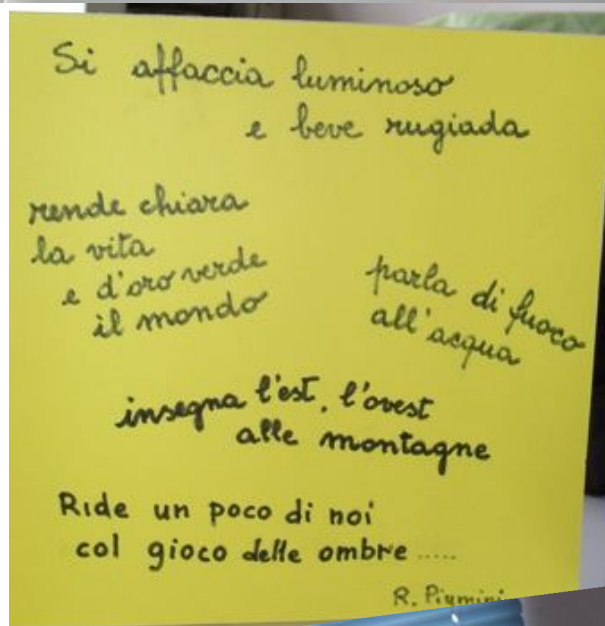 Si affaccia luminoso
e beve rugiada
rende chiara
la vita
e d'oro verde
il mondo
parla di fuoco
all'acqua
insegna l'est, l'ovest
alle montagne
Ride un poco di noi
col gioco delle ombre .....
R. Piumini